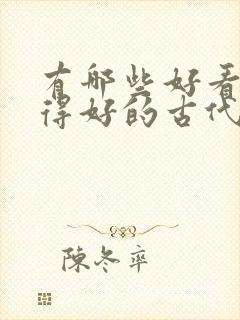 有哪些好看
得好的古代
陳冬率